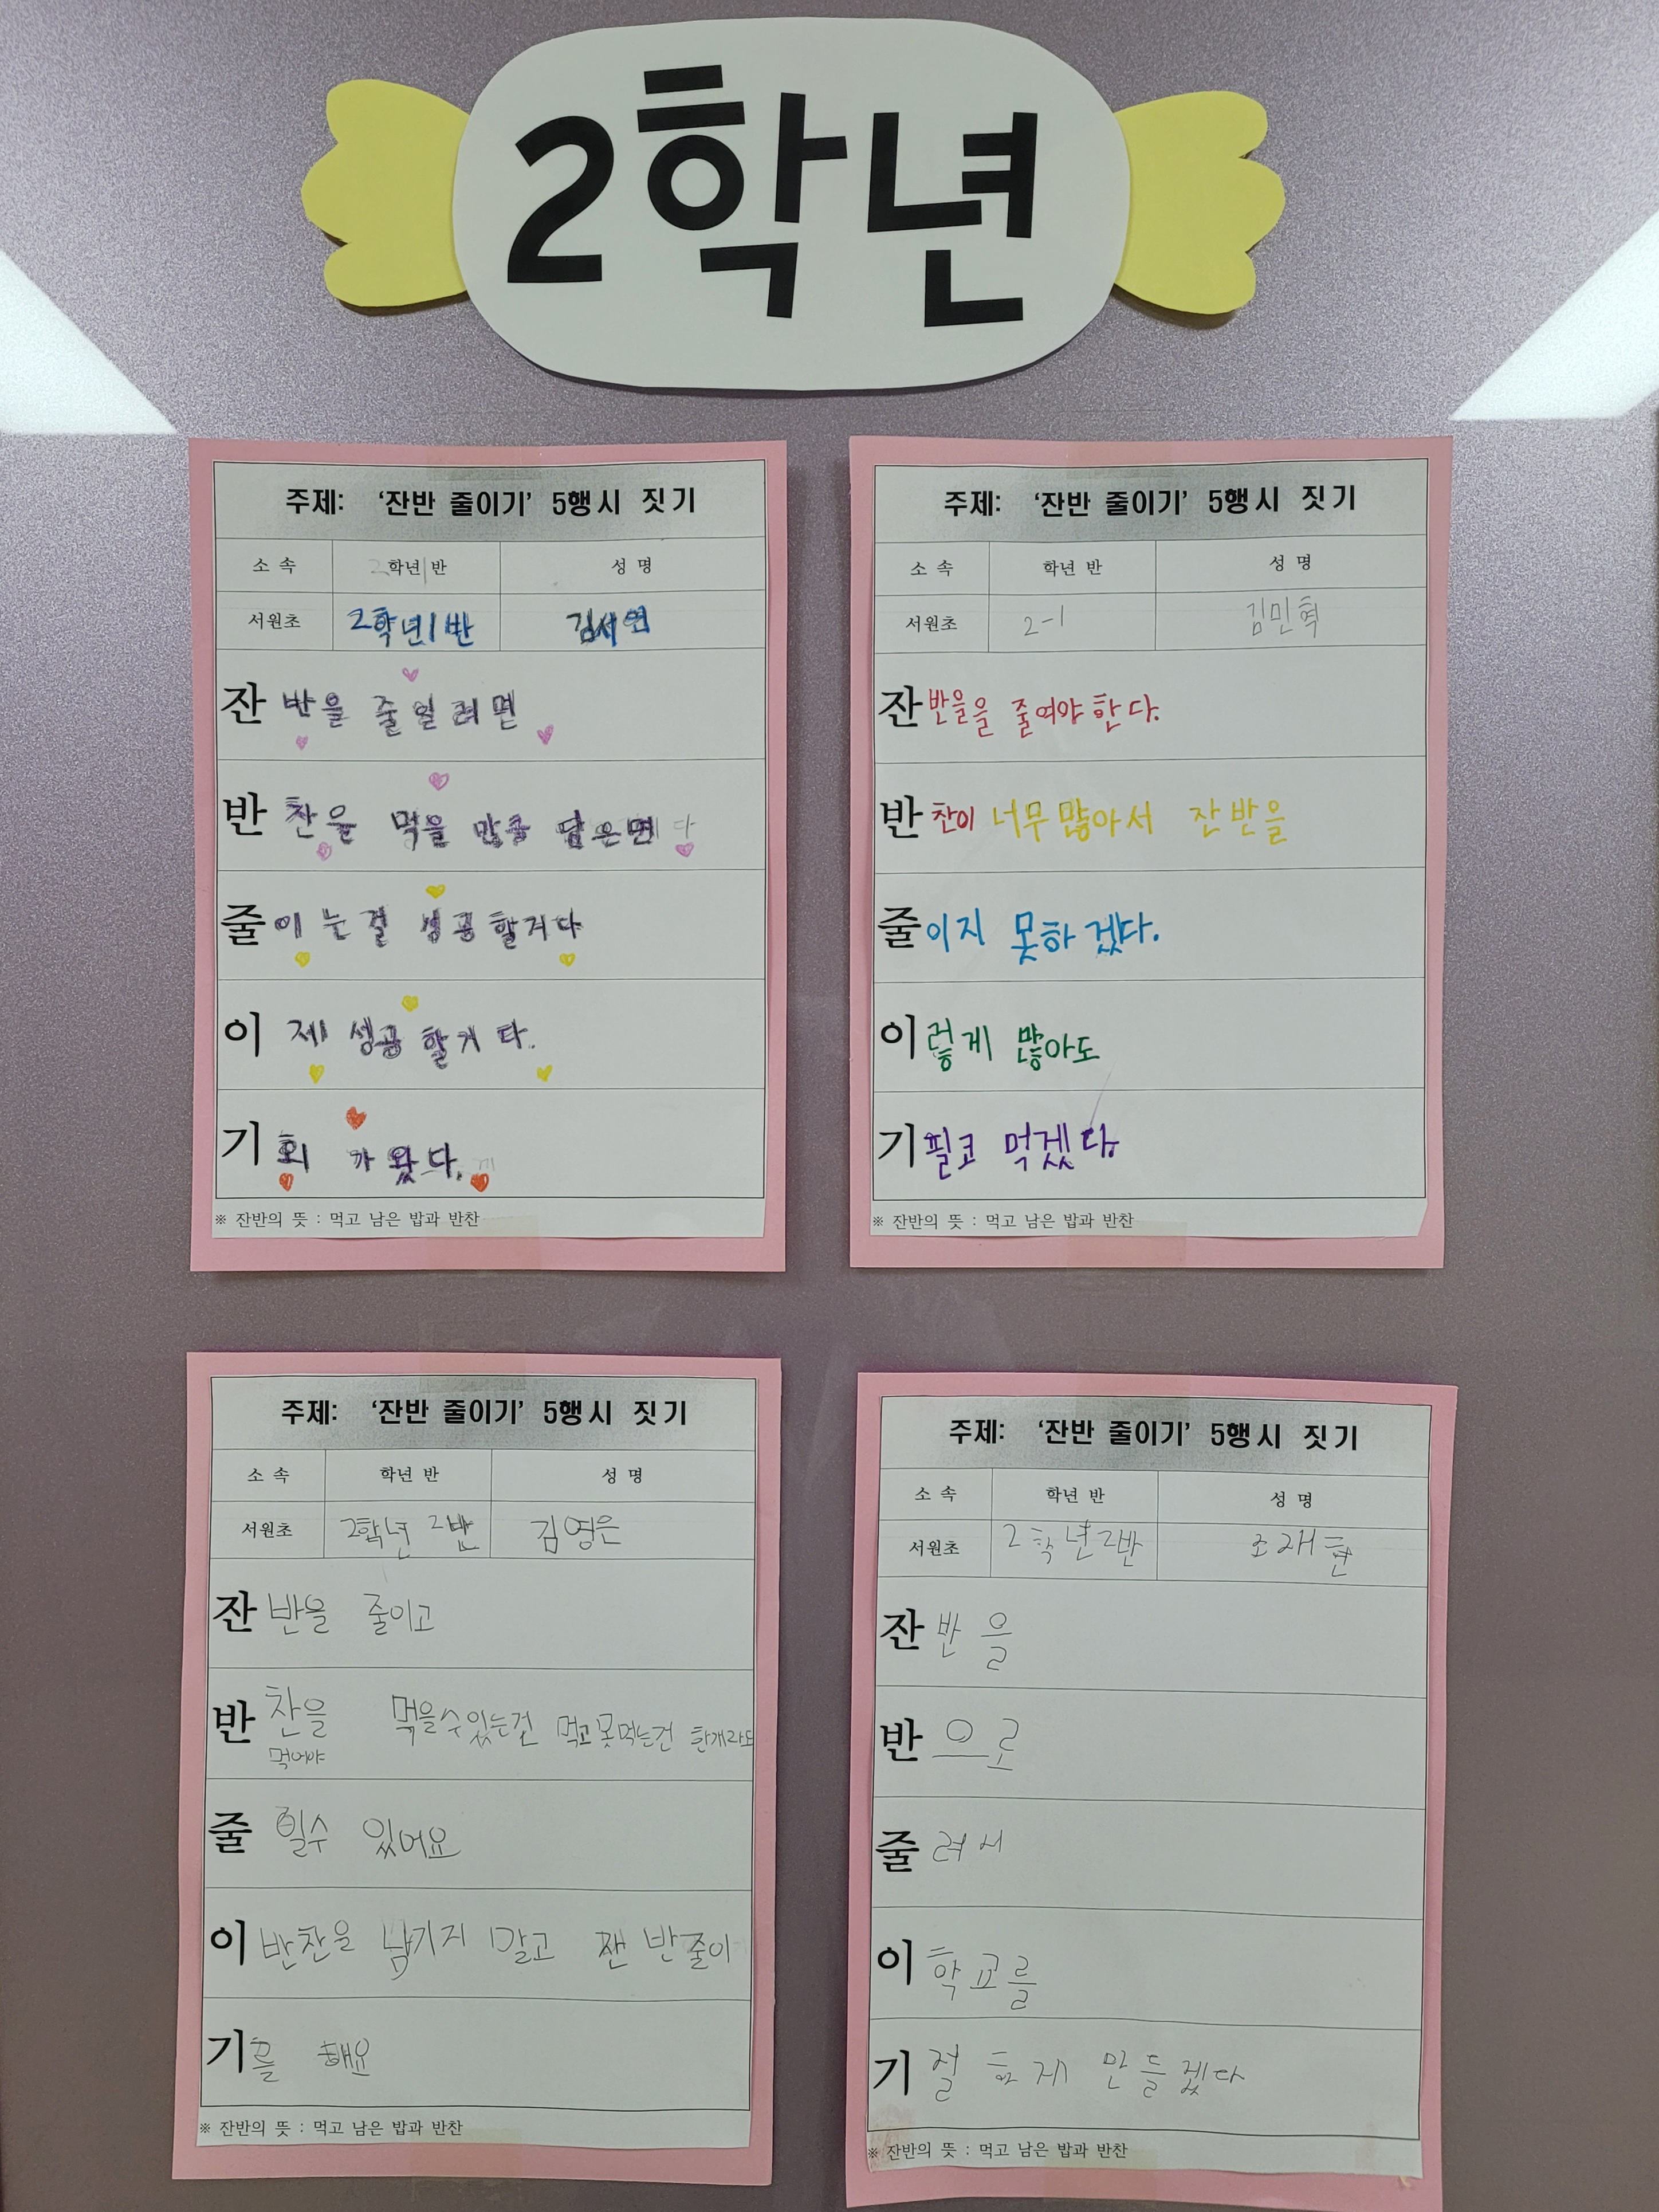 2학년
주제: '잔반 줄이기' 5행시 짓기
소 속 2학년1반 성 명
서원초 2학년1반 김서연
잔반을 줄일려면
반찬을 먹을 만큼 담은면
줄이는걸 성공할거다
이제 성공할거다.
기회가 왔다.
※ 잔반의 뜻 : 먹고 남은 밥과 반찬
주제: '잔반 줄이기' 5행시 짓기
소 속 학년 반 성 명
서원초 2-1 김민혁
잔반을을 줄여야 한다.
반찬이 너무 많아서 잔반을
줄이지 못하겠다.
이렇게 많아도
기필코 먹겠다.
※ 잔반의 뜻 : 먹고 남은 밥과 반찬
주제: '잔반 줄이기' 5행시 짓기
소 속 학년 반 성 명
서원초 2학년 2반 김영은
잔반을 줄이고
반찬을 먹을수있는건 먹고 못먹는건 한개라도
먹어야
줄일수 있어요
이반찬은 남기지 말고 잔반줄이
기를 해요
※ 잔반의 뜻 : 먹고 남은 밥과 반찬
주제: '잔반 줄이기' 5행시 짓기
소 속 학년 반 성 명
서원초 2학년2반 조재현
잔반을
반으로
줄려서
이학교를
기절하게 만들겠다
※ 잔반의 뜻 : 먹고 남은 밥과 반찬